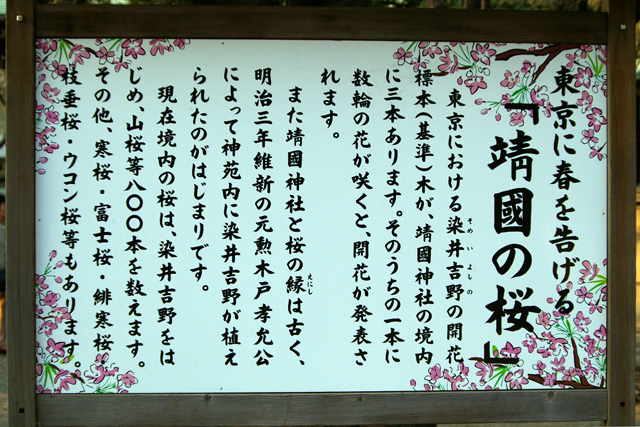 東京に春を告げる
「靖國の桜」
東京における染井吉野の開花
そめいよしの
標本(基準)木が、靖國神社の境内
に三本あります。そのうちの一本に
数輪の花が咲くと、開花が発表さ
れます。
また靖國神社と桜の縁は古く、
えにし
明治三年維新の元勲木戸孝允公
によって神苑内に染井吉野が植え
られたのがはじまりです。
現在境内の桜は、染井吉野をは
じめ、山桜等八〇〇本を数えます。
その他、寒桜・富士桜・緋寒桜
枝垂桜・ウコン桜等もあります。